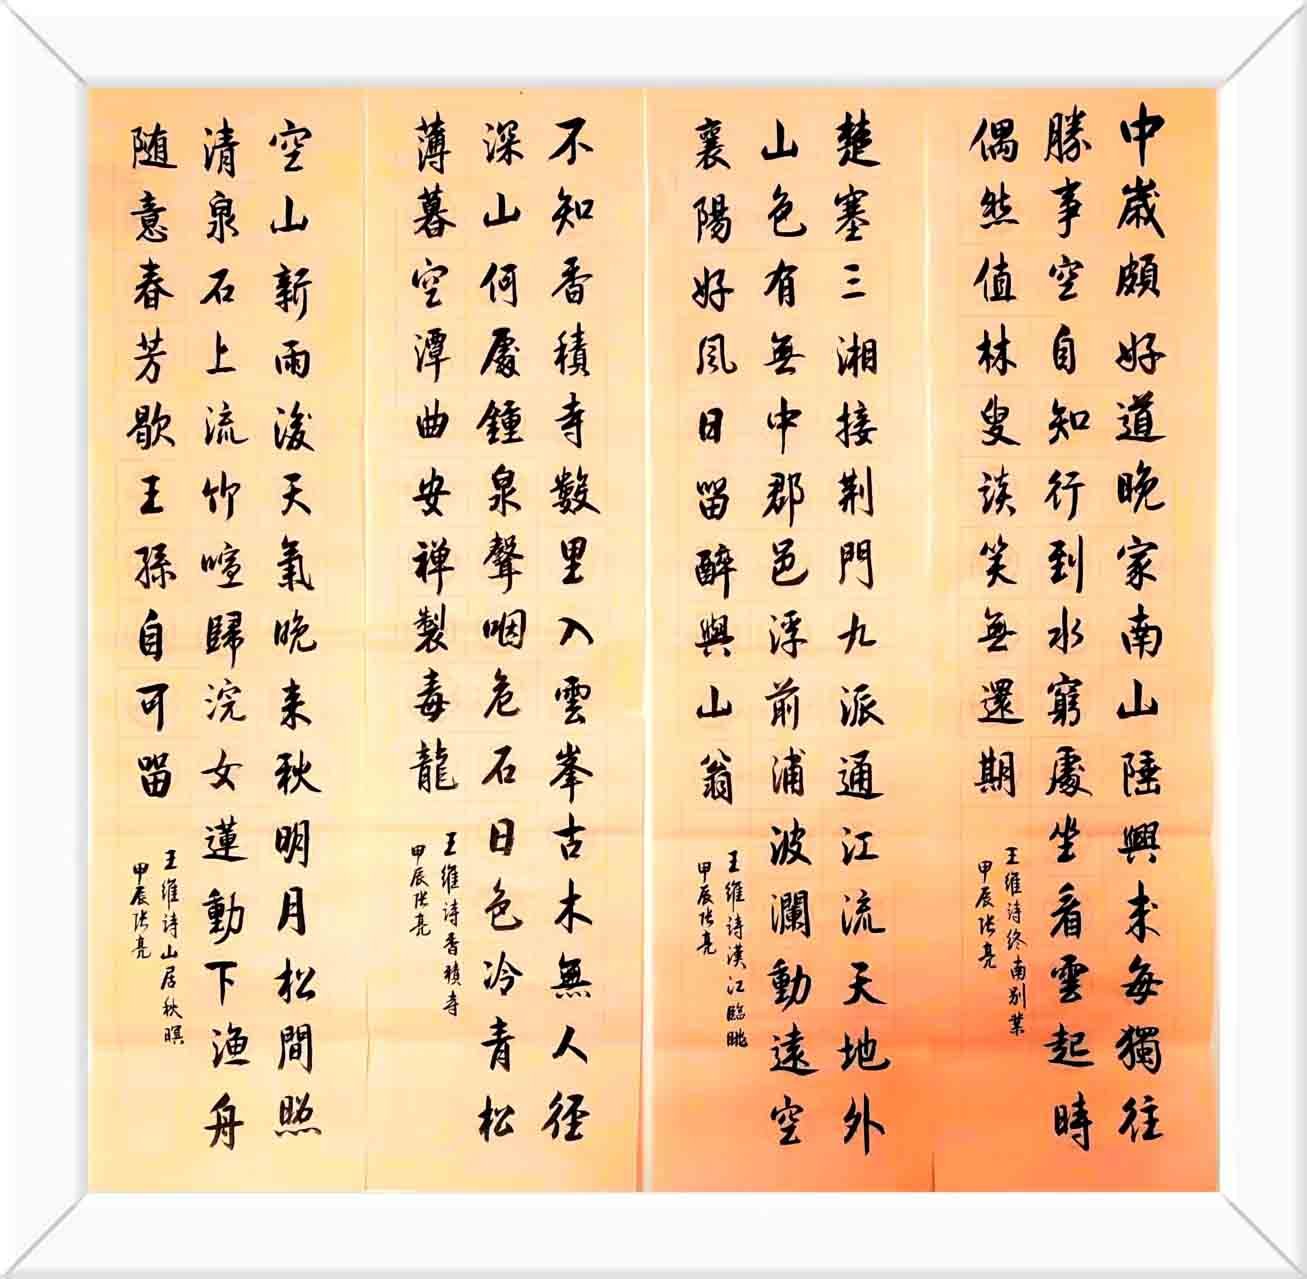 中歲頗好道晚家南山陲興来每獨往
勝事空自知行到水窮處坐看雲起時
偶然值林叟談笑無還期
王維诗终南别業
甲辰张亮
楚塞三湘接荆門九派通江流天地外
山色有無中郡邑浮前浦波瀾動遠空
襄陽好風日留醉與山翁
王維诗漢江臨眺
甲辰张亮
不知香積寺數里入雲峯古木無人徑
深山何處鍾泉聲咽危石日色冷青松
薄暮空潭曲安禅製毒龍
王維诗香積寺
甲辰张亮
空山新雨後天氣晚来秋明月松間照
清泉石上流竹喧歸浣女蓮動下渔舟
随意春芳歇王孫自可留
王維诗山居秋暝
甲辰张亮